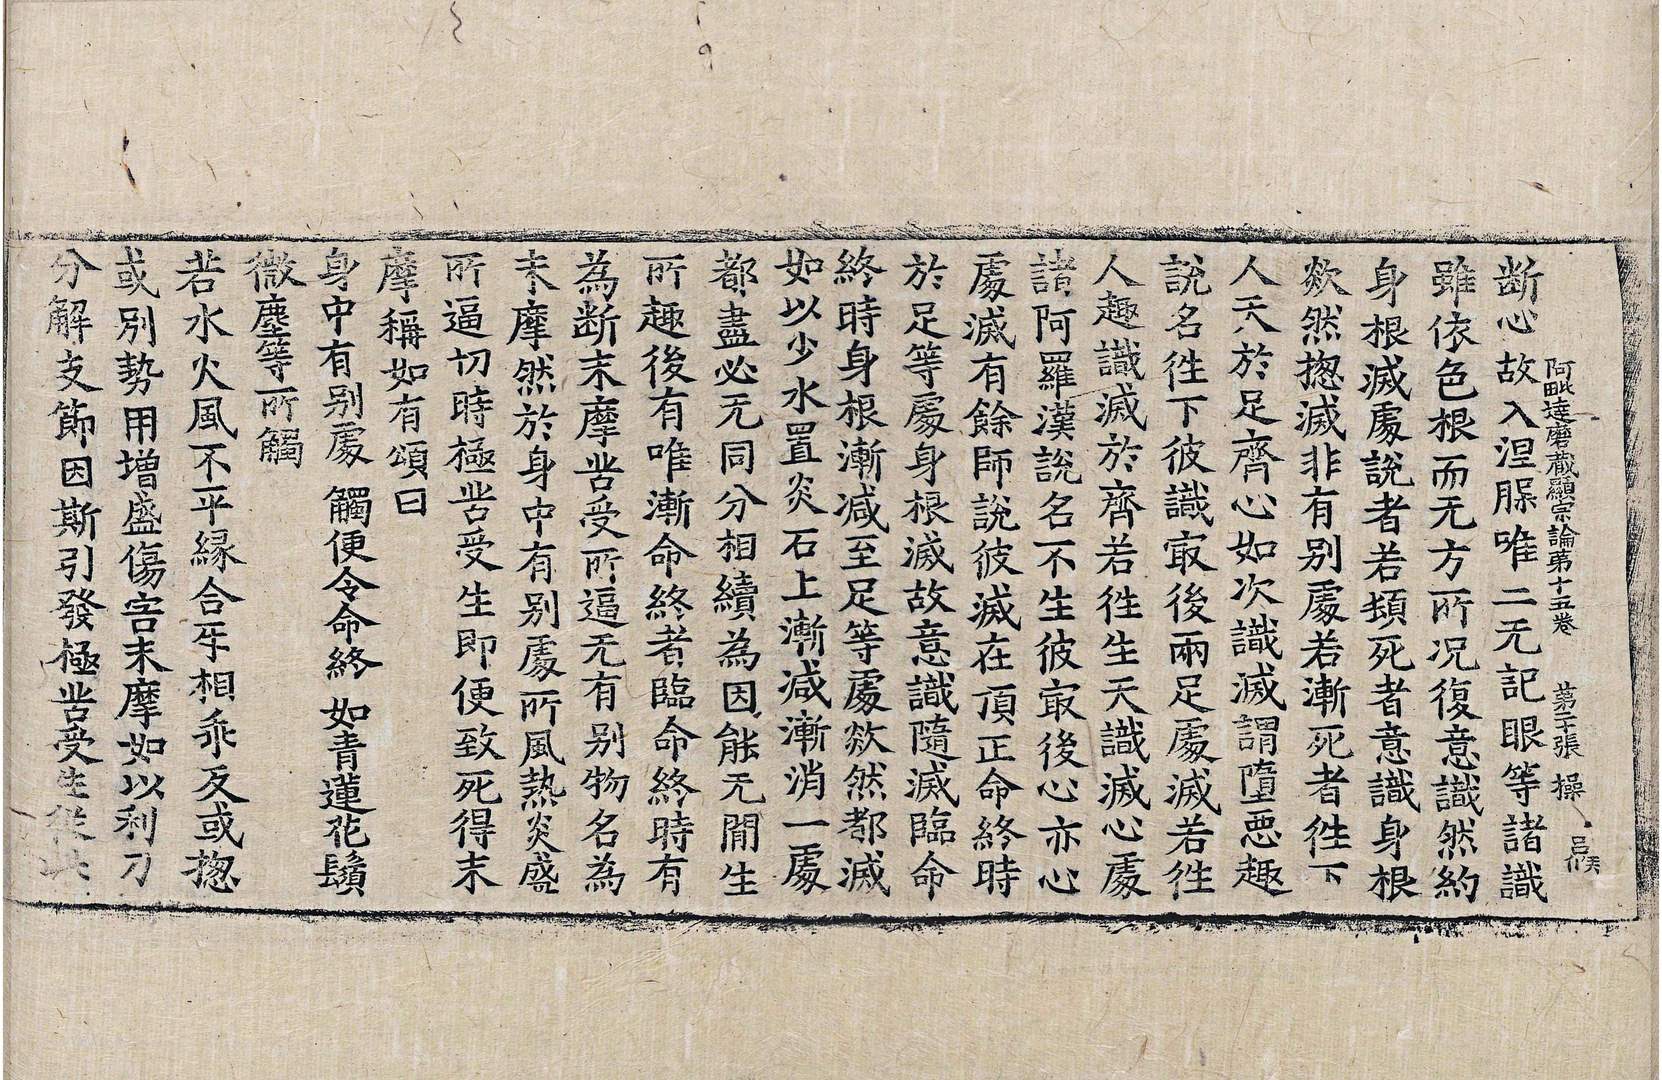 阿毗達磨藏顯宗論第十五卷　第二十張　操　呂候
断心故入涅脲唯二无記眼等諸識
雖依色根而无方所况復意識然約
身根滅處說者若頓死者意識身根
欻然揔滅非有别處若漸死者徃下
人天於足齊心如次識滅謂墮惡趣
說名徃下彼識㝡後兩足處滅若徃
人趣識滅於齊若徃生天識滅心處
諸阿羅漢說名不生彼㝡後心亦心
處滅有餘師說彼滅在頂正命終時
於足等處身根滅故意識隨滅臨命
終時身根漸减至足等處欻然都滅
如以少水置炎石上漸减漸消一處
都盡必无同分相續為因能无間生
所趣後有唯漸命終者臨命終時有
為断末摩苦受所逼无有别物名為
末摩然於身中有别處所風熱炎盛
所逼切時極苦受生即便致死得末
摩稱如有頌曰
身中有别處　觸便令命終　如青蓮花鬚
微塵等所觸
若水火風不平緣合㸦相乖反或揔
或别勢用增盛傷害末摩如以利刀
分解支節因斯引發極苦受生從此